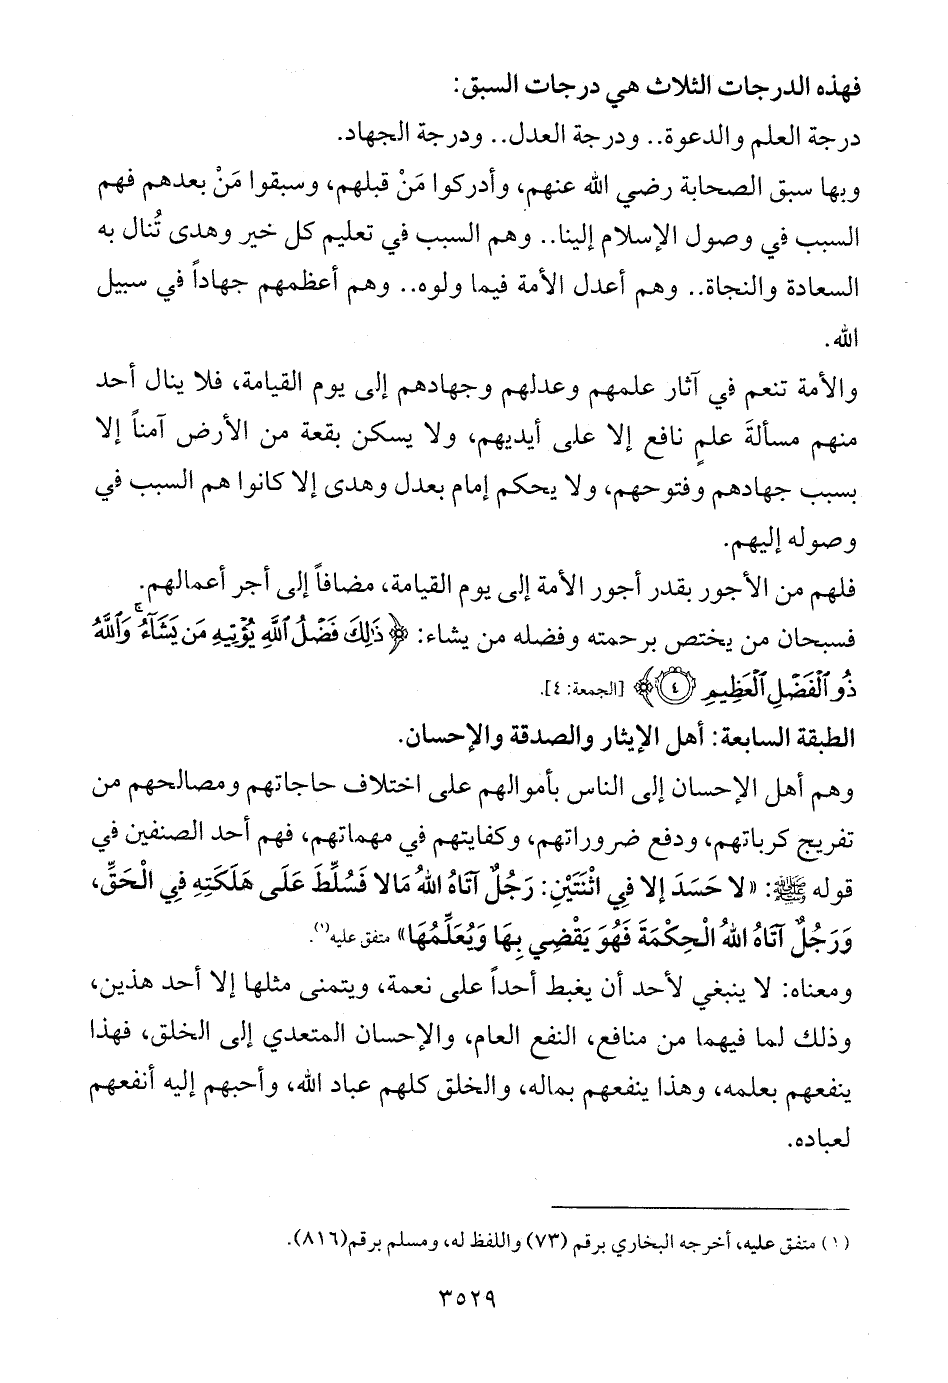 فهذه الدرجات الثلاث هي درجات السبق:
درجة العلم والدعوة.. ودرجة العدل.. ودرجة الجهاد.
وبها سبق الصحابة رضي الله عنهم، وأدركوا مَنْ قبلهم، وسبقوا مَنْ بعدهم فهم
السبب في وصول الإسلام إلينا.. وهم السبب في تعليم كل خير وهدى تُنال به
السعادة والنجاة.. وهم أعدل الأمة فيما ولوه.. وهم أعظمهم جهاداً في سبيل
الله.
والأمة تنعم في آثار علمهم وعدلهم وجهادهم إلى يوم القيامة، فلا ينال أحد
منهم مسألةَ علمٍ نافع إلا على أيديهم، ولا يسكن بقعة من الأرض آمناً إلا
بسبب جهادهم وفتوحهم، ولا يحكم إمام بعدل وهدى إلا كانوا هم السبب في
وصوله إليهم.
فلهم من الأجور بقدر أجور الأمة إلى يوم القيامة، مضافاً إلى أجر أعمالهم.
فسبحان من يختص برحمته وفضله من يشاء: ﴿ذَٰلِكَ فَضْلُ ٱللَّهِ يُؤْتِيهِ مَن يَشَآءُ ۚ وَٱللَّهُ
ذُو ٱلْفَضْلِ ٱلْعَظِيمِ ٤﴾ [الجمعة: ٤].
الطبقة السابعة: أهل الإيثار والصدقة والإحسان.
وهم أهل الإحسان إلى الناس بأموالهم على اختلاف حاجاتهم ومصالحهم من
تفريج كرباتهم، ودفع ضروراتهم، وكفايتهم في مهماتهم، فهم أحد الصنفين في
قوله ﷺ: «لا حَسَدَ إلا فِي اثْنَتَيْنِ: رَجُلٌ آتَاهُ اللهُ مَالا فَسُلِّطَ عَلَى هَلَكَتِهِ فِي الْحَقِّ،
وَرَجُلٌ آتَاهُ اللهُ الْحِكْمَةَ فَهُوَ يَقْضِي بِهَا وَيُعَلِّمُهَا» متفق عليه(١).
ومعناه: لا ينبغي لأحد أن يغبط أحداً على نعمة، ويتمنى مثلها إلا أحد هذين،
وذلك لما فيهما من منافع، النفع العام، والإحسان المتعدي إلى الخلق، فهذا
ينفعهم بعلمه، وهذا ينفعهم بماله، والخلق كلهم عباد الله، وأحبهم إليه أنفعهم
لعباده.
(١) متفق عليه، أخرجه البخاري برقم (٧٣) واللفظ له، ومسلم برقم(٨١٦).
٣٥٢٩